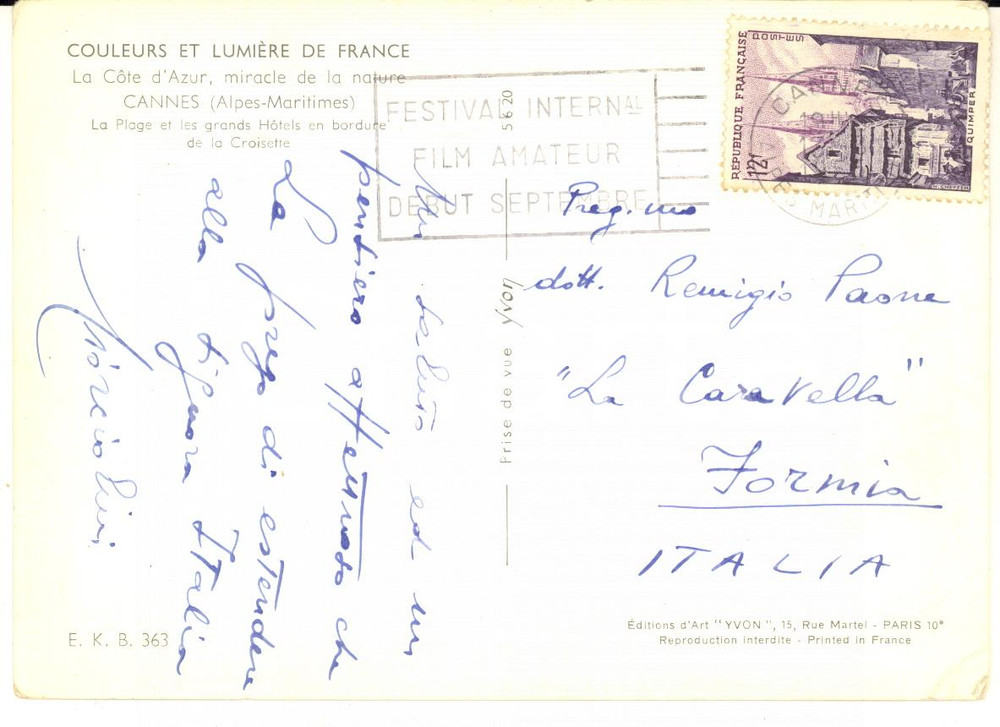 COULEURS ET LUMIÈRE DE FRANCE
La Côte d'Azur, miracle de la nature
CANNES (Alpes-Maritimes)
La Plage et les grands Hôtels en bordure
de la Croisette
FESTIVAL INTERNAL
FILM AMATEUR
DEBUT SEPTEMBRE
RÉPUBLIQUE FRANÇAISE
POSTES
12f
QUIMPER
CANNES
MARIT
Un saluto ed un
pensiero affettuoso che
La prego di estendere
alla Signora Italia
5 6 20
Prise de vue Yvon
Preg.mo
dott. Remigio Paone
"La Caravella"
Formia
ITALIA
E. K. B. 363
Éditions d'Art "YVON", 15, Rue Martel - PARIS 10e
Reproduction interdite - Printed in France